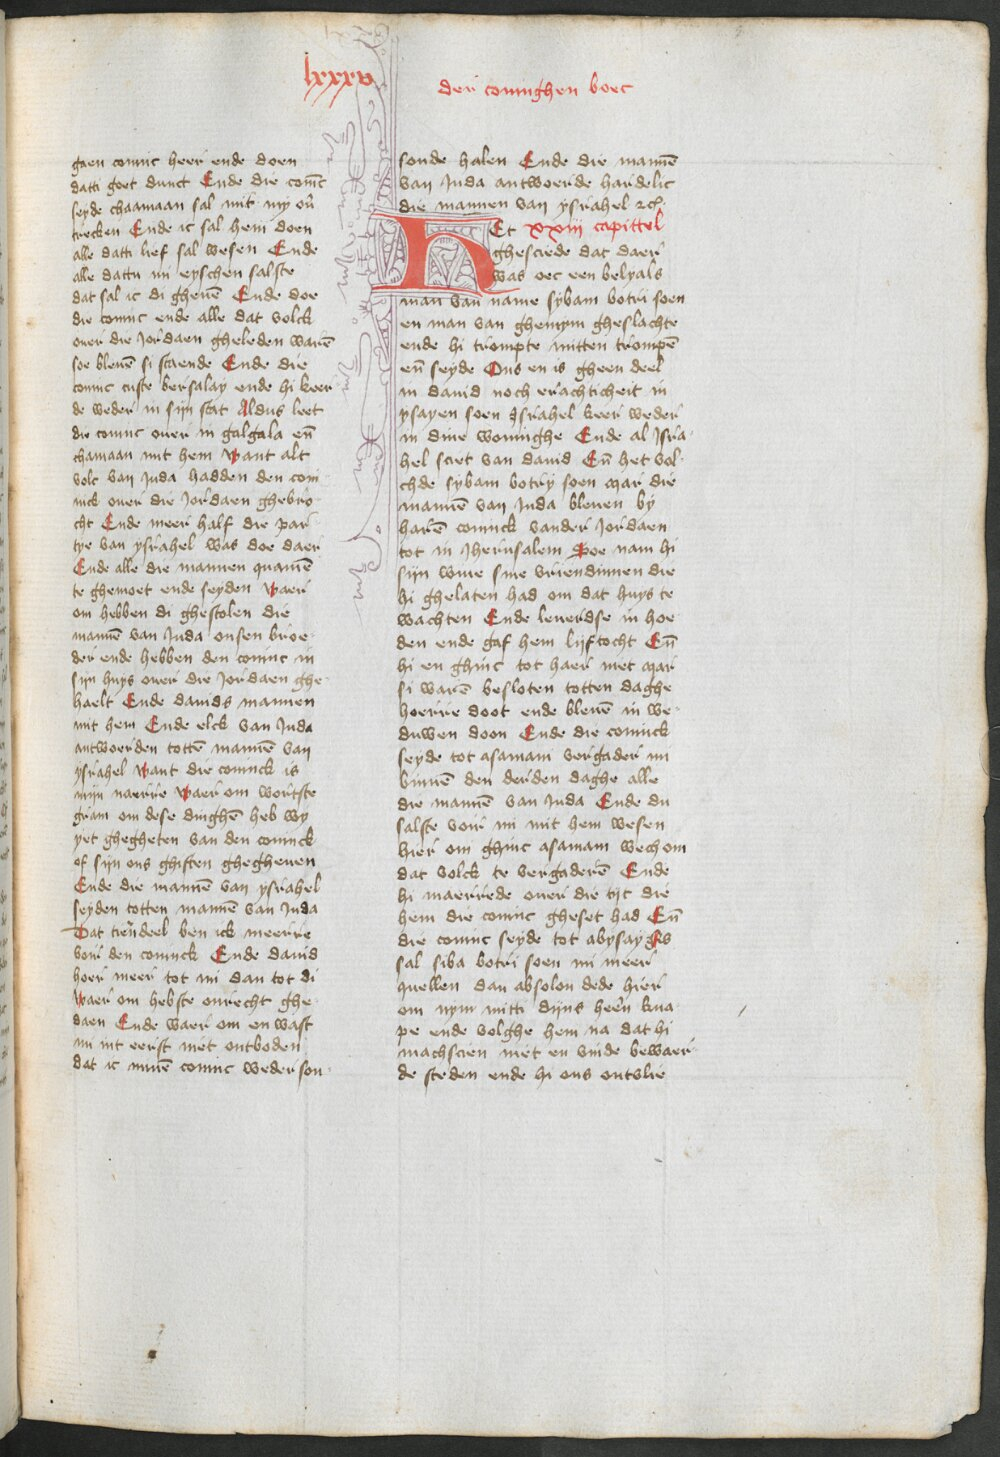 lxxxv
der coninghen boec
gaen coninc heer ende doen
datti goet dunct Ende die conīc
seyde chaamaan sal mit my ov̄
trecken Ende ic sal hem doen
alle datti lief sal wesen Ende
alle dattu mi eyschen salste
dat sal ic di ghevē Ende doe
die coninc ende alle dat volck
over die Jordaen gheleden warē
soe blevē si staende Ende die
coninc custe bersalay ende hi keer
de weder in sijn stat Aldus leet
die coninc over in galgala eñ
chamaan mit hem Want alt
volc van Juda hadden den con
nick over die Jordaen ghebro
cht Ende meer half die par
tye van ysrahel was doe daer
Ende alle die mannen quamē
te ghemoet ende seyden Waer
om hebben di ghestolen die
mannē van Juda onsen broe
der ende hebben den coninc in
sijn huys over die Jordaen ghe
haelt Ende davids mannen
mit hem Ende elck van Juda
antwoerden tottē mannē van
ysrahel Want die coninck is
mijn naerre Waer om wortste
gram om dese dinghē heb wy
yet ghegheten van den coninck
of sijn ons ghiften ghegheven
Ende die mannē van ysrahel
seyden totten mannē van Juda
Dat tien̄deel ben ick meerre
voir den coninck Ende david
hoer meer tot mi dan tot di
Waer om hebste onrecht ghe
daen Ende waer om en wast
mi int eerst niet ontboden
dat ic minē coninc weder son
sonde halen Ende die mannē
van Juda antwoerde hardelic
die mannen van ysrahel zc̄
HEt xxiij capittel
ghesciede dat daer
was oec een belyals
man van name sybam botri soen
en man van ghemym gheslachte
ende hi trompte mitten trompē
eñ seyde Ons en is gheen deel
in david noch erachticheit in
ysayen soen Israhel keer weder
in dine woninghe Ende al Isra
hel sciet van david Eñ het vol
chde sybam botry soen Mar die
mannē van Juda bleven by
harē coninck vander Jordaen
tot in Jherusalem Doe nam hi
sijn wive sine vriendinnen die
hi ghelaten had om dat huys te
wachten Ende leverdse in hoe
den ende gaf hem lijftocht Eñ
hi en ghinc tot haer niet Mar
si warē besloten totten daghe
hoerre doot ende blevē in we
duwen doon Ende die coninck
seyde tot asamam vergader mi
binnē den derden daghe alle
die mannē van Juda Ende du
salste voir mi mit hem wesen
Hier om ghinc asamam wech om
dat volck te vergaderē Ende
hi maerrede over die tijt die
hem die coninc gheset had Eñ
die coninc seyde tot abysay Es
sal siba botri soen mi meer
quellen dan absolon dede hier
om nym mitti dijns heer̄n kna
pe ende volghe hem na dat hi
machscien niet en vinde bewaer
de steden ende hi ons ontvlie